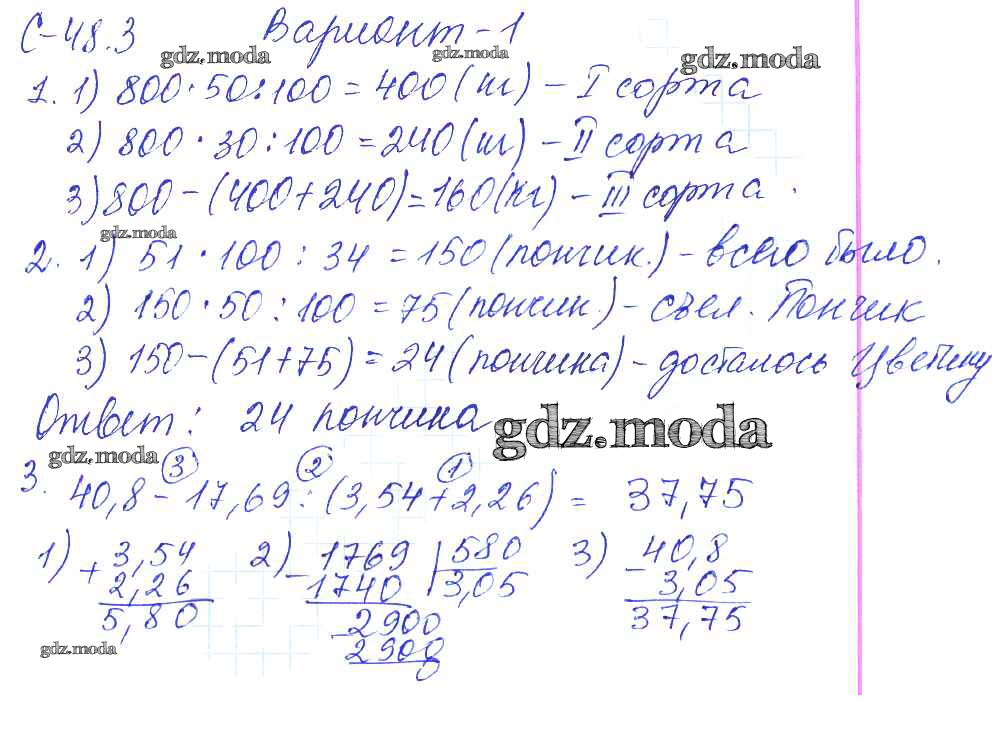 С-48.3 Вариант-1
gdz.moda gdz.moda gdz.moda
1. 1) 800·50:100=400(кг) – I сорта
2) 800·30:100=240(кг) – II сорта
3) 800-(400+240)=160(кг) – III сорта.
gdz.moda
2. 1) 51·100:34=150(пончик.) – всего было.
2) 150·50:100=75(пончик.) – съел. Пончик
3) 150-(51+75)=24(пончика) – досталось Цветику
Ответ: 24 пончика
gdz.moda
gdz.moda
3 2 1
3. 40,8-17,69:(3,54+2,26)= 37,75
1) + 3,54 2) - 1769 | 580 3) - 40,8
2,26 1740 3,05 3,05
5,80 - 2900 37,75
2900
0
gdz.moda